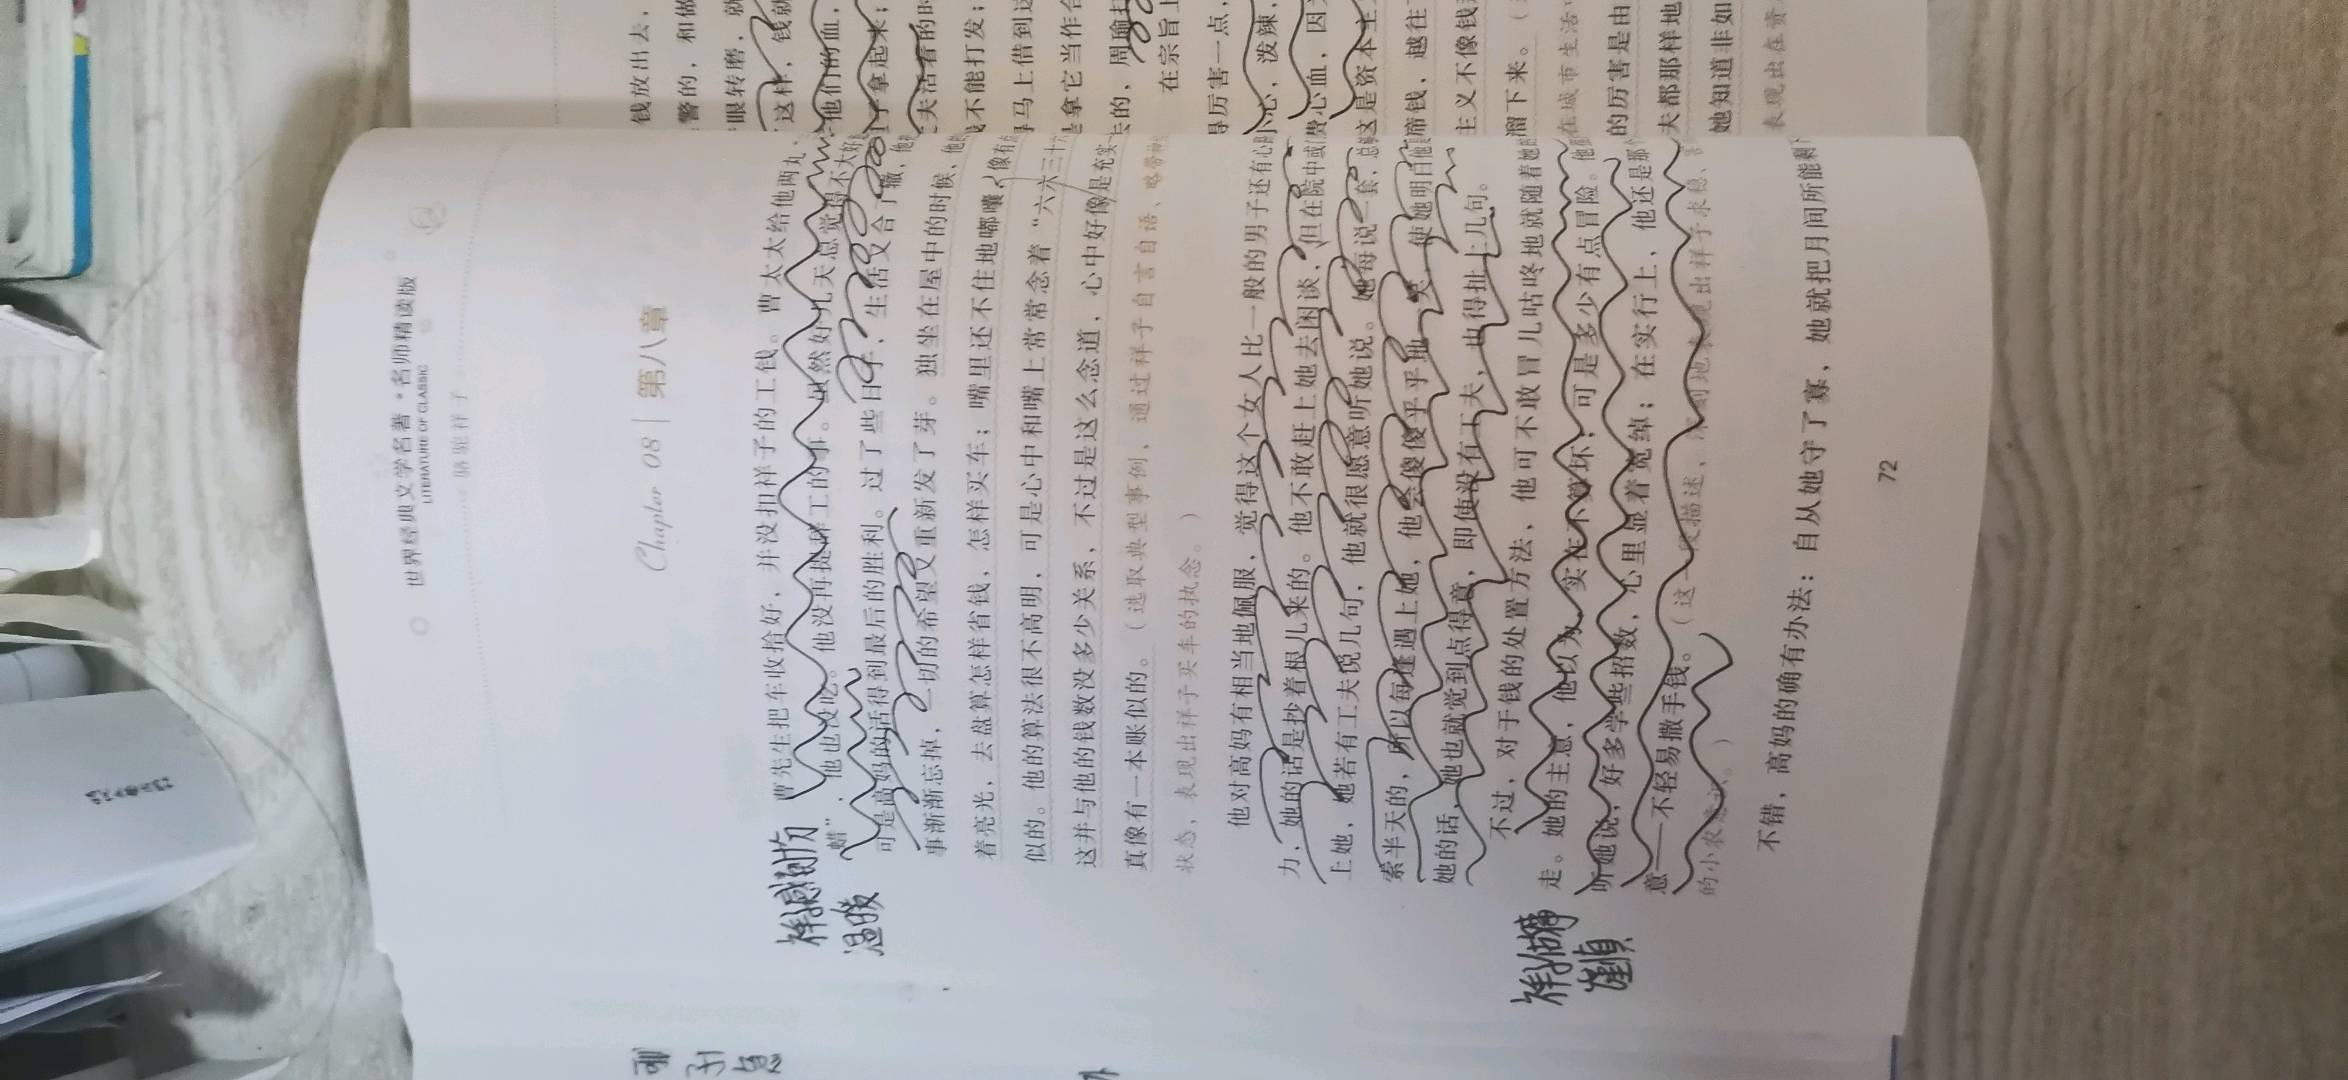 世界经典文学名著·名师精读版
LITERATURE OF CLASSIC
骆驼祥子
Chapter 08 | 第八章
曹先生把车收拾好，并没扣祥子的工钱。曹太太给他两丸
蜡”，他也没吃。他没再提辞工的事。虽然好几天总觉得不大好
可是高妈的话得到最后的胜利。过了些日子，生活又合了辙，他
事渐渐忘掉，一切的希望又重新发了芽。独坐在屋中的时候，他
着亮光，去盘算怎样省钱，怎样买车；嘴里还不住地嘟囔，像有
似的。他的算法很不高明，可是心中和嘴上常常念着“六六三十
这并与他的钱数没多少关系，不过是这么念道，心中好像是充实
真像有一本账似的。（选取典型事例，通过祥子自言自语、略带神
状态，表现出祥子买车的执念。）
他对高妈有相当地佩服，觉得这个女人比一般的男子还有心
力，她的话是抄着根儿来的。他不敢赶上她去闲谈，但在院中或
上她，她若有工夫说几句，他就很愿意听她说。她每说一套，总
索半天的，所以每逢遇上她，他会傻傻乎乎地一笑，使她明白他
她的话，她也就觉到点得意，即使没有工夫，也得扯上几句。
不过，对于钱的处置方法，他可不敢冒儿咕咚地就随着她
走。她的主意，他以为，实在不算坏；可是多少有点冒险。他
听她说，好多学些招数，心里显着宽绰；在实行上，他还是那
意——不轻易撒手钱。（这一段描述，深刻地表现出祥子求稳、
的小农意识。）
不错，高妈的确有办法：自从她守了寡，她就把月间所能剩
72
祥子感到
温暖
祥子
谨慎
钱放出去，
警的，和做
眼转磨，就
这样，钱就
他们的血，
子拿起来；
夫活着的时
不能打发；
马上借到这
拿它当作合
去的，周瑜打
在宗旨上
得厉害一点，
小心，泼辣，
费心血，因
这是资本主
蹄钱，越往
主义不像钱
溜下来。（
在城市生活
的厉害是由
夫都那样地
她知道非如
表现出在贵